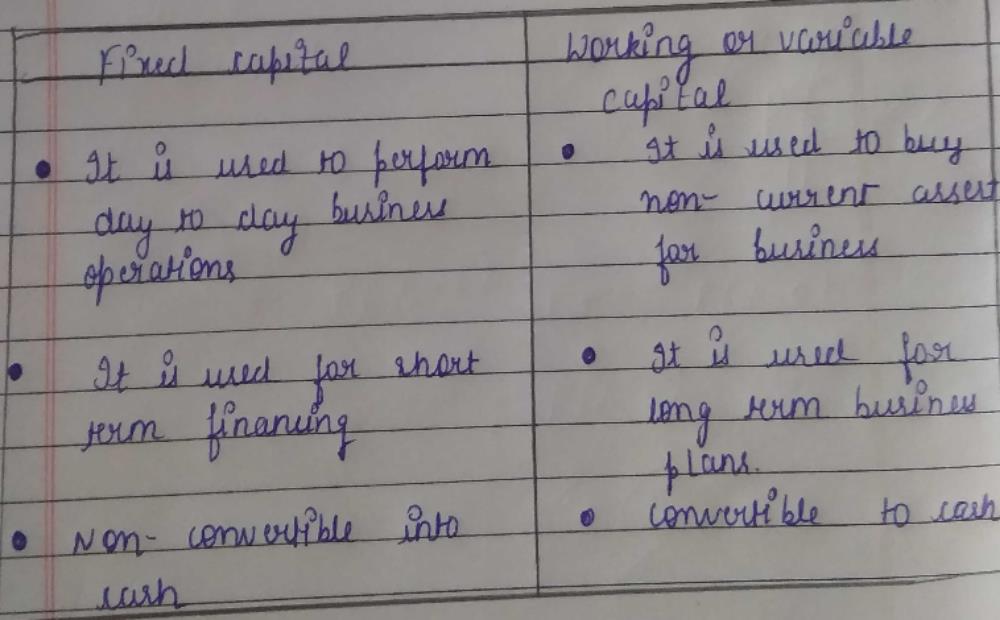 Fixed capital
• It is used to perform
day to day business
operations
• It is used for short
term financing
• Non-convertible into
cash
Working or variable
capital
• It is used to buy
non-current assert
for business
• It is used for
long term business
plans.
• convertible to cash